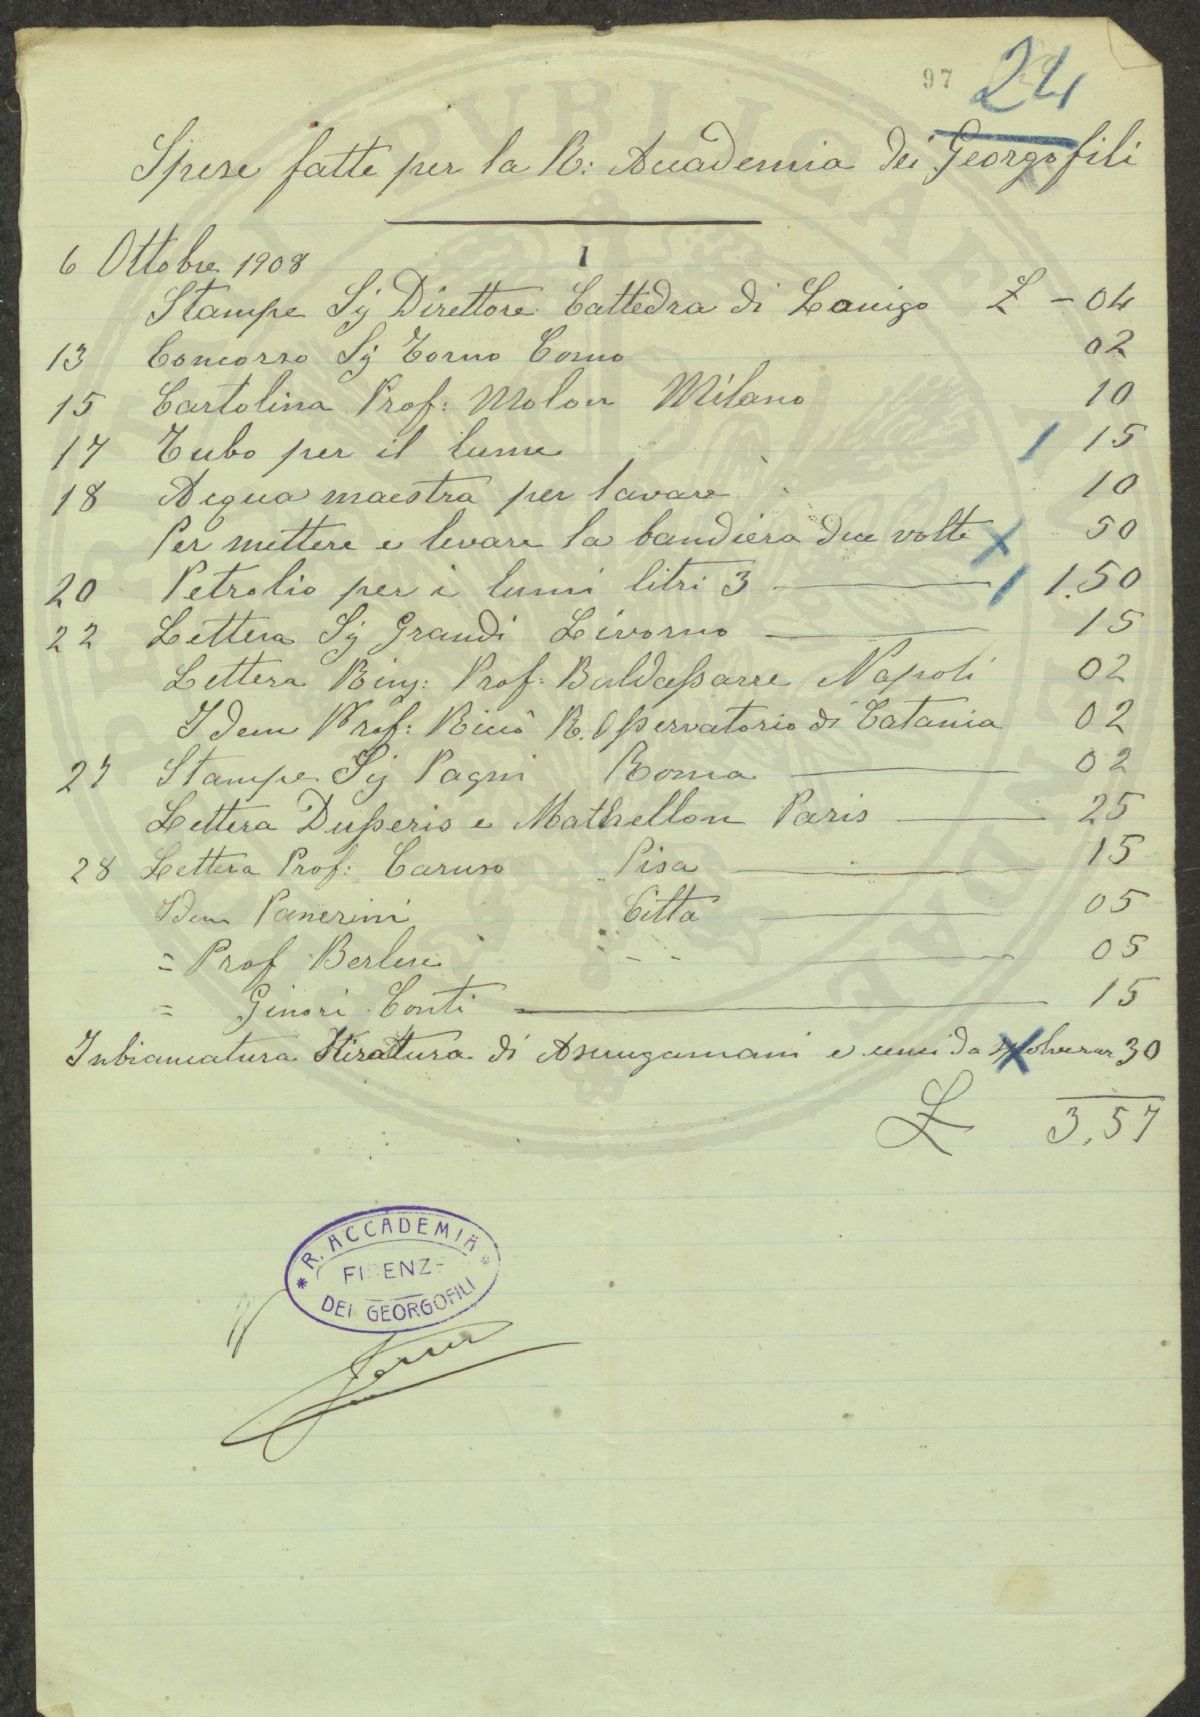 97 24
Spese fatte per la R: Accademia dei Georgofili
6 Ottobre 1908 1
Stampe Sig Direttore Cattedra di Lonigo £ - 04
13 Concorso Sig Torno Como 02
15 Cartolina Prof: Molon Milano 10
17 Tubo per il lume 15
18 Acqua maestra per lavare 10
Per mettere e levare la bandiera due volte 50
20 Petrolio per i lumi litri 3 1.50
22 Lettera Sig Grandi Livorno 15
Lettera Ring: Prof: Baldassarre Napoli 02
Idem Prof: Riccò R. Osservatorio di Catania 02
27 Stampe Sig Pagni Roma 02
Lettera Dusseris e Mathellon Paris 25
28 Lettera Prof: Caruso Pisa 15
Idem Panerini Citta 05
= Prof Berlese - - 05
= Ginori Conti 15
Inbiancatura Stiratura di Asciugamani e cenci da spolverar 30
£ 3,57
R. ACCADEMIA
FIRENZE
DEI GEORGOFILI